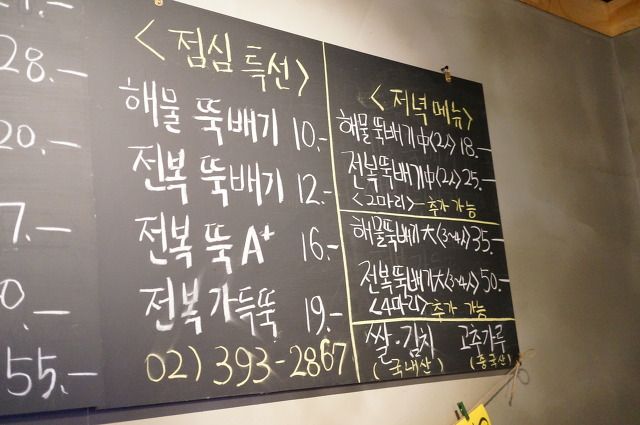 28.—
20.—
7.—
0.—
55.—
<점심 특선>
해물 뚝배기 10.-
전복 뚝배기 12.-
전복 뚝A+ 16.-
전복가득뚝 19.-
02) 393-2867
<저녁 메뉴>
해물뚝배기中(2人) 18.—
전복뚝배기中(2人) 25.—
<2마리> 추가 가능
해물뚝배기大(3~4人) 35.—
전복뚝배기大(3~4人) 50.—
<4마리> 추가 가능
쌀·김치 고추가루
(국내산) (중국산)